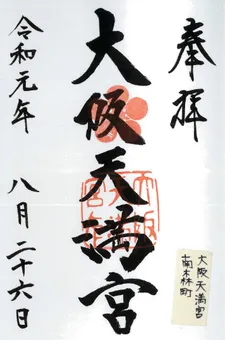 奉拝
大阪天満宮
令和元年 八月二十六日
大阪天満宮
南木林町